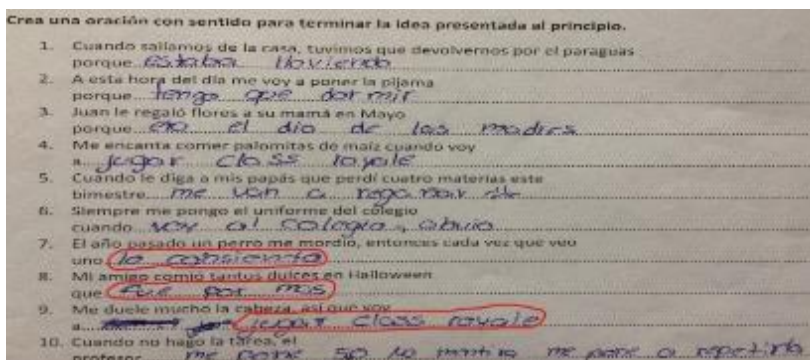 Crea una oración con sentido para terminar la idea presentada al principio.
1. Cuando salíamos de la casa, tuvimos que devolvernos por el paraguas
porque estaba lloviendo
2. A esta hora del día me voy a poner la pijama
porque tengo que dormir
3. Juan le regaló flores a su mamá en Mayo
porque era el dia de las madres
4. Me encanta comer palomitas de maíz cuando voy
a jugar class royale
5. Cuando le diga a mis papás que perdí cuatro materias este
bimestre me van a
6. Siempre me pongo el uniforme del colegio
cuando voy al colegio, obvio
7. El año pasado un perro me mordió, entonces cada vez que veo
uno lo consiento
8. Mi amigo comió tantos dulces en Halloween
que fue por mas
9. Me duele mucho la cabeza, así que voy
a jugar class royale
10. Cuando no hago la tarea, el
profesor me pone a repetirla